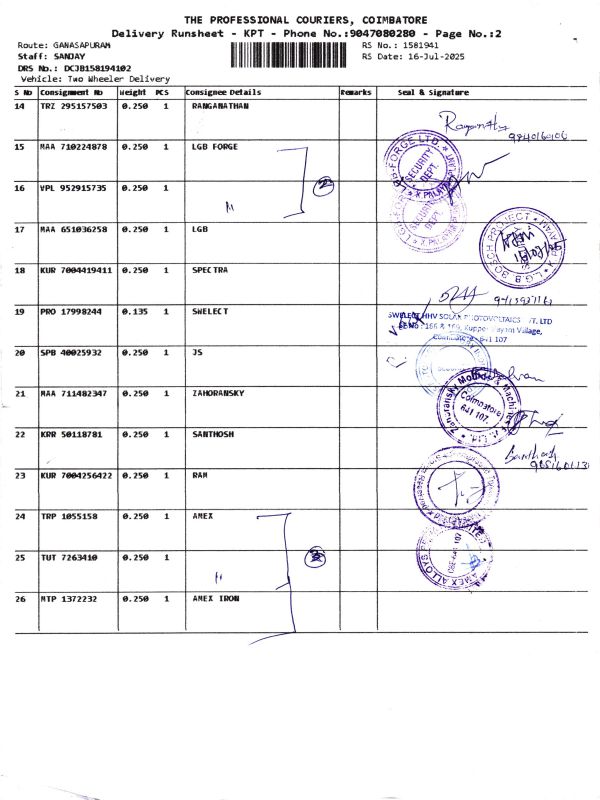 THE PROFESSIONAL COURIERS, COIMBATORE
Delivery Runsheet - KPT - Phone No.:9047080280 - Page No.:2
Route: GANASAPURAM
RS No.: 1581941
Staff: SANJAY
RS Date: 16-Jul-2025
DRS No.: DCJB158194102
Vehicle: Two Wheeler Delivery
S No Consignment No Weight PCS Consignee Details Remarks Seal & Signature
14 TRZ 295157503 0.250 1 RANGANATHAN
15 MAA 710224878 0.250 1 LGB FORGE
16 VPL 952915735 0.250 1
17 MAA 651036258 0.250 1 LGB
18 KUR 7004419411 0.250 1 SPECTRA
19 PRO 17998244 0.135 1 SWELECT
SWELECT HHV SOLAR PHOTOVOLTAICS PVT. LTD
166 & 169, Kuppepalayam Village,
Coimbatore - 641 107
20 SPB 40025932 0.250 1 JS
21 MAA 711482347 0.250 1 ZAHORANSKY
Coimbatore
641 107.
22 KRR 50118781 0.250 1 SANTHOSH
Santhosh
23 KUR 7004256422 0.250 1 RAM
24 TRP 1055158 0.250 1 AMEX
25 TUT 7263410 0.250 1
26 MTP 1372232 0.250 1 AMEX IRON